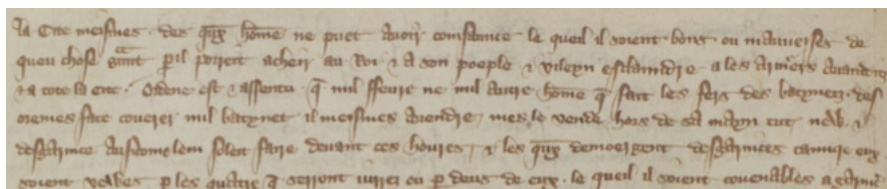 la Cite meismes des queux home ne puet avoir conisance le queil il soient bons ou mauveises de
queu chose grant peril poreit acheir au Roi & a son poeple & vileyn esclaundre a les armers avanditz
& a tote la cite. Ordene est & assentu q nul ffeure ne nul autre home q fait les fers des bacynetz des
oremes face coverer nul bacynet il meismes a vendre mes le vende hors de sa mayn tut nwe &
desgarnice ausicome lem soleit faire devant ces houres & les queux demoergent desgarnices tanqe eux
soient vewes p les quatre q serront jurez ou p deus de eux le queil il soient covenables a garnir